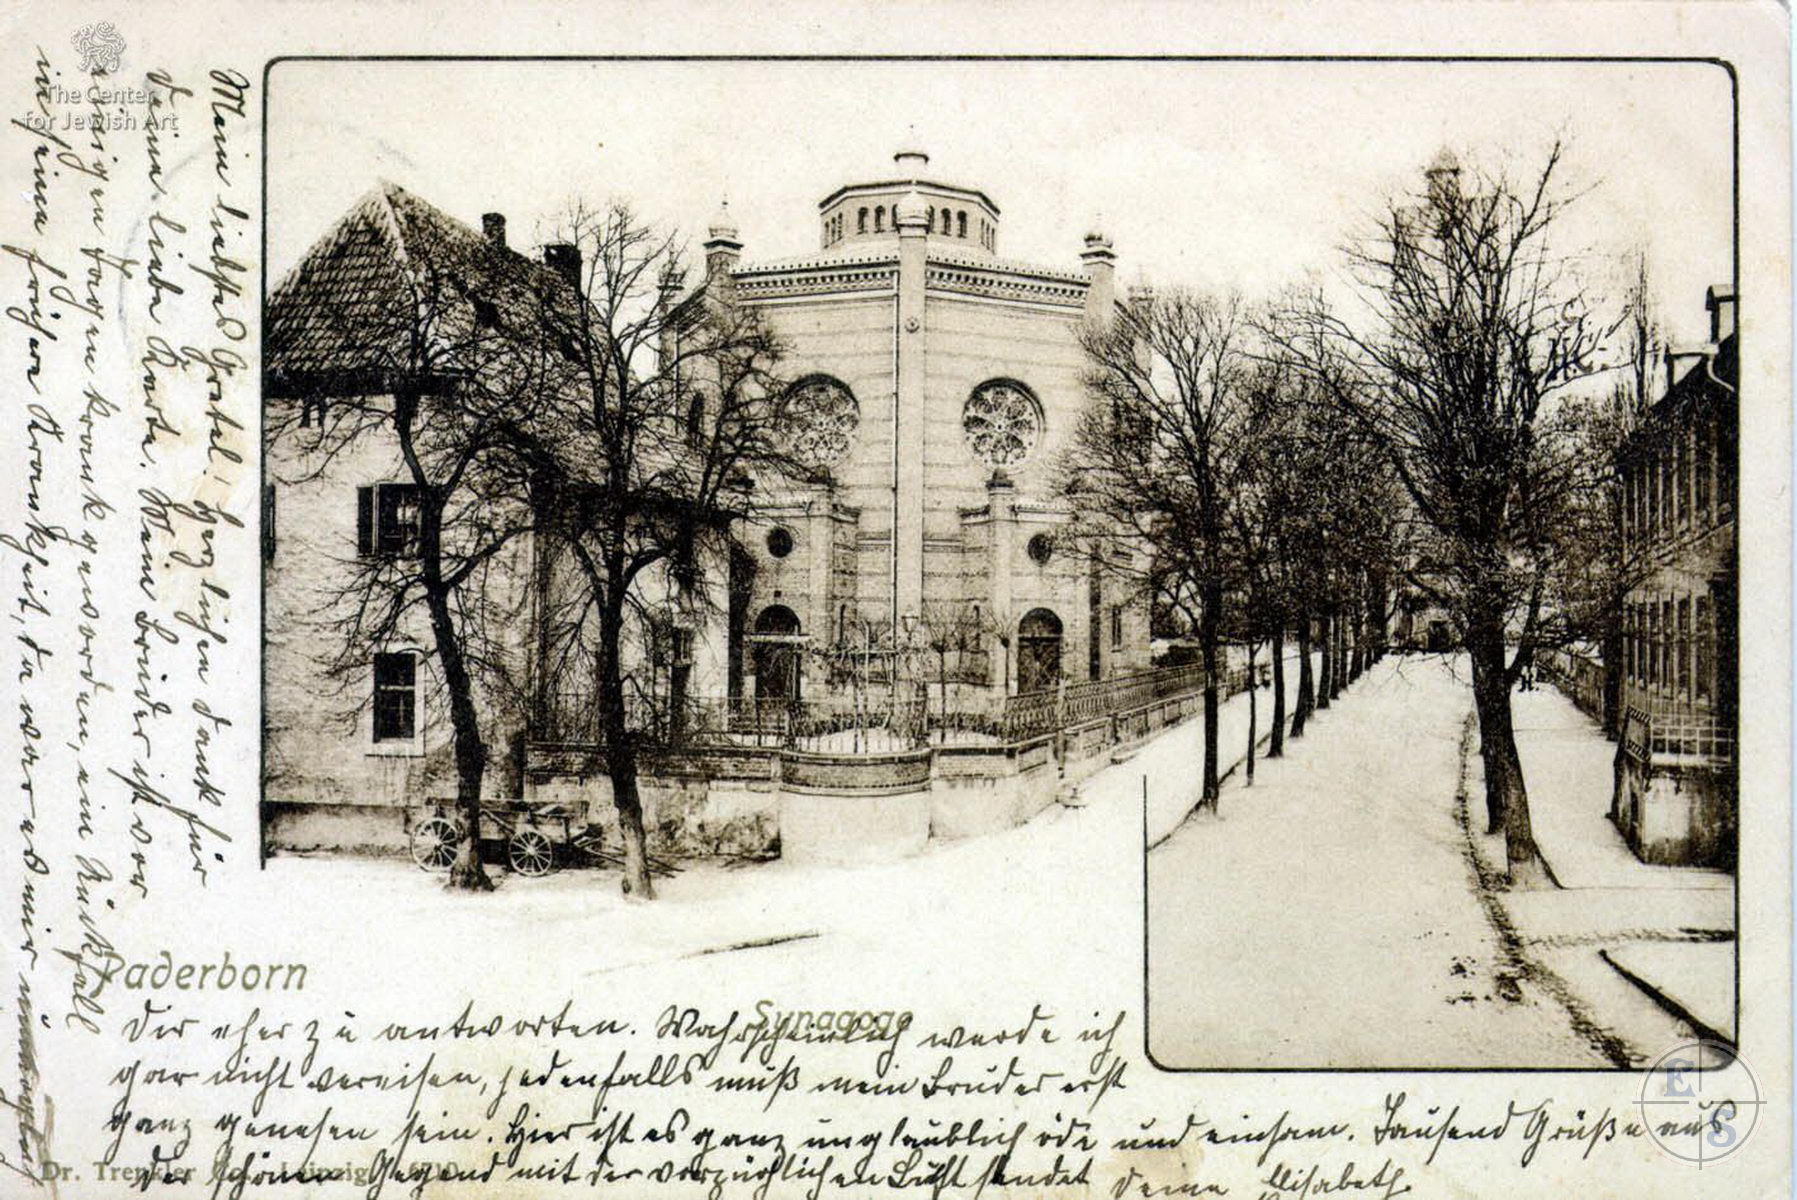 The Center
for Jewish Art
Mein liebstes Gretel! Herzlichen Dank für
Deine liebe Karte. Mein Bruder ist vor
einigen Tagen krank geworden, ein Rückfall
in seine frühere Krankheit, da war es mir unmöglich
Dir eher zu antworten. Wahrscheinlich werde ich
gar nicht vereisen, jedenfalls muß mein Bruder erst
ganz genesen sein. Hier ist es ganz unglaublich öde und einsam. Tausend Grüße aus
der schönen Gegend mit der vorzüglichen Luft sendet Deine Elisabeth.
Paderborn
Synagoge
Dr. Trenkler Co., Leipzig
E
S